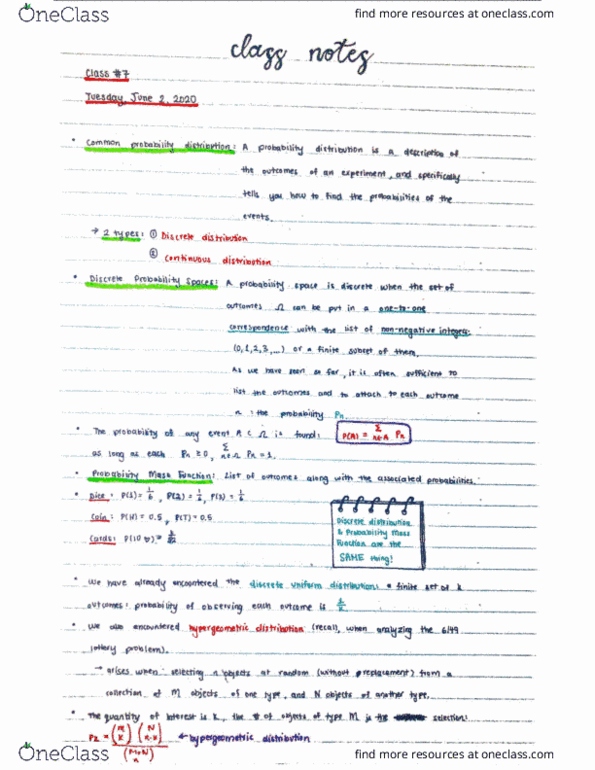 OneClass
find more resources at oneclass.com
class notes
Class #7
Tuesday, June 2, 2020
• Common probability distribution: A probability distribution is a description of
the outcomes of an experiment, and specifically
tells you how to find the probabilities of the
events.
→ 2 types: ① Discrete distribution
② Continuous distribution
• Discrete Probability Spaces: A probability space is discrete when the set of
outcomes Ω can be put in a one-to-one
correspondence with the list of non-negative integers
(0,1,2,3,...) or a finite subset of them.
As we have seen so far, it is often sufficient to
list the outcomes and to attach to each outcome
n : the probability Pn
• The probability of any event A ⊂ Ω is found: P(A) = Σ n∈A Pn
as long as each Pn ≥ 0, Σ n∈Ω Pn = 1.
• Probability Mass Function: List of outcomes along with the associated probabilities.
• Dice: P(1) = 1/6, P(2) = 1/6, P(3) = 1/6
Coin: P(H) = 0.5, P(T) = 0.5
Cards: P(10 ♡) = 1/52
Discrete distribution
& Probability Mass
Function are the
SAME thing!
• We have already encountered the discrete uniform distribution: a finite set of k
outcomes: probability of observing each outcome is 1/k
• We also encountered hypergeometric distribution (recall, when analyzing the 6/49
lottery problem).
→ arises when selecting n objects at random (without replacement) from a
collection of M objects of one type, and N objects of another type.
• The quantity of interest is k, the # of objects of type M in the selection:
(M k) (N n-k) ← hypergeometric distribution
(M+N n)
OneClass
find more resources at oneclass.com